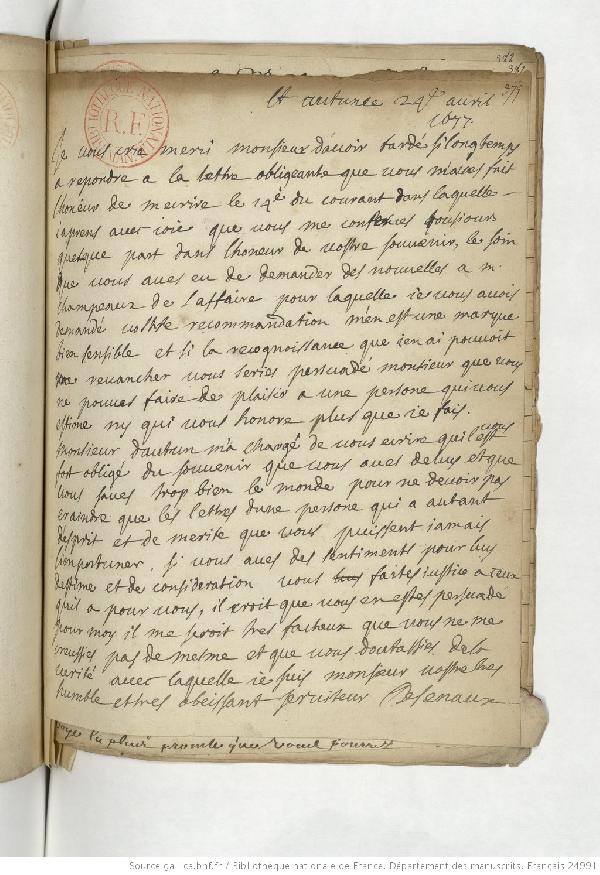 A autun ce 24e avril
1677
Je vous crie merci monsieur davoir tardé si longtemps
a repondre a la lettre obligeante que vous maves fait
lhoneur de mecrire le 14e du courant dans laquelle
iaprens avec ioie que vous me conserves tousiours
quelque part dans lhoneur de vostre souvenir, le soin
que vous aves eu de demander des nouvelles a mr
champeaux de l'affaire pour laquelle ie vous avois
demandé vostre recommandation m'en est une marque
bien sensible et si la recognoissance que ien ai pouvoit
revancher vous series persuadé monsieur que vous
ne pouves faire de plaisir a une persone qui vous
estime ny qui vous honore plus que ie fais.
monsieur dautun ma chargé de vous ecrire quil vous est
fort obligé du souvenir que vous aves de luy et que
vous saves trop bien le monde pour ne devoir pas
craindre que les lettres dune persone qui a autant
desprit et de merite que vous puissent iamais
importuner, si vous aves des sentiments pour luy
destime et de consideration vous faites iustice a ceux
quil a pour vous, il croit que vous en estes persuadé
pour moy il me seroit tres facheux que vous ne me
creussies pas de mesme et que vous doutassies de la
verité avec laquelle ie suis monsieur vostre tres
humble et tres obeissant serviteur Desenaux
la plus promte que vous
Source gallica.bnf.fr / Bibliothèque nationale de France. Département des manuscrits. Français 24991
BIBLIOTHEQUE NATIONALE
R.F.
MAN